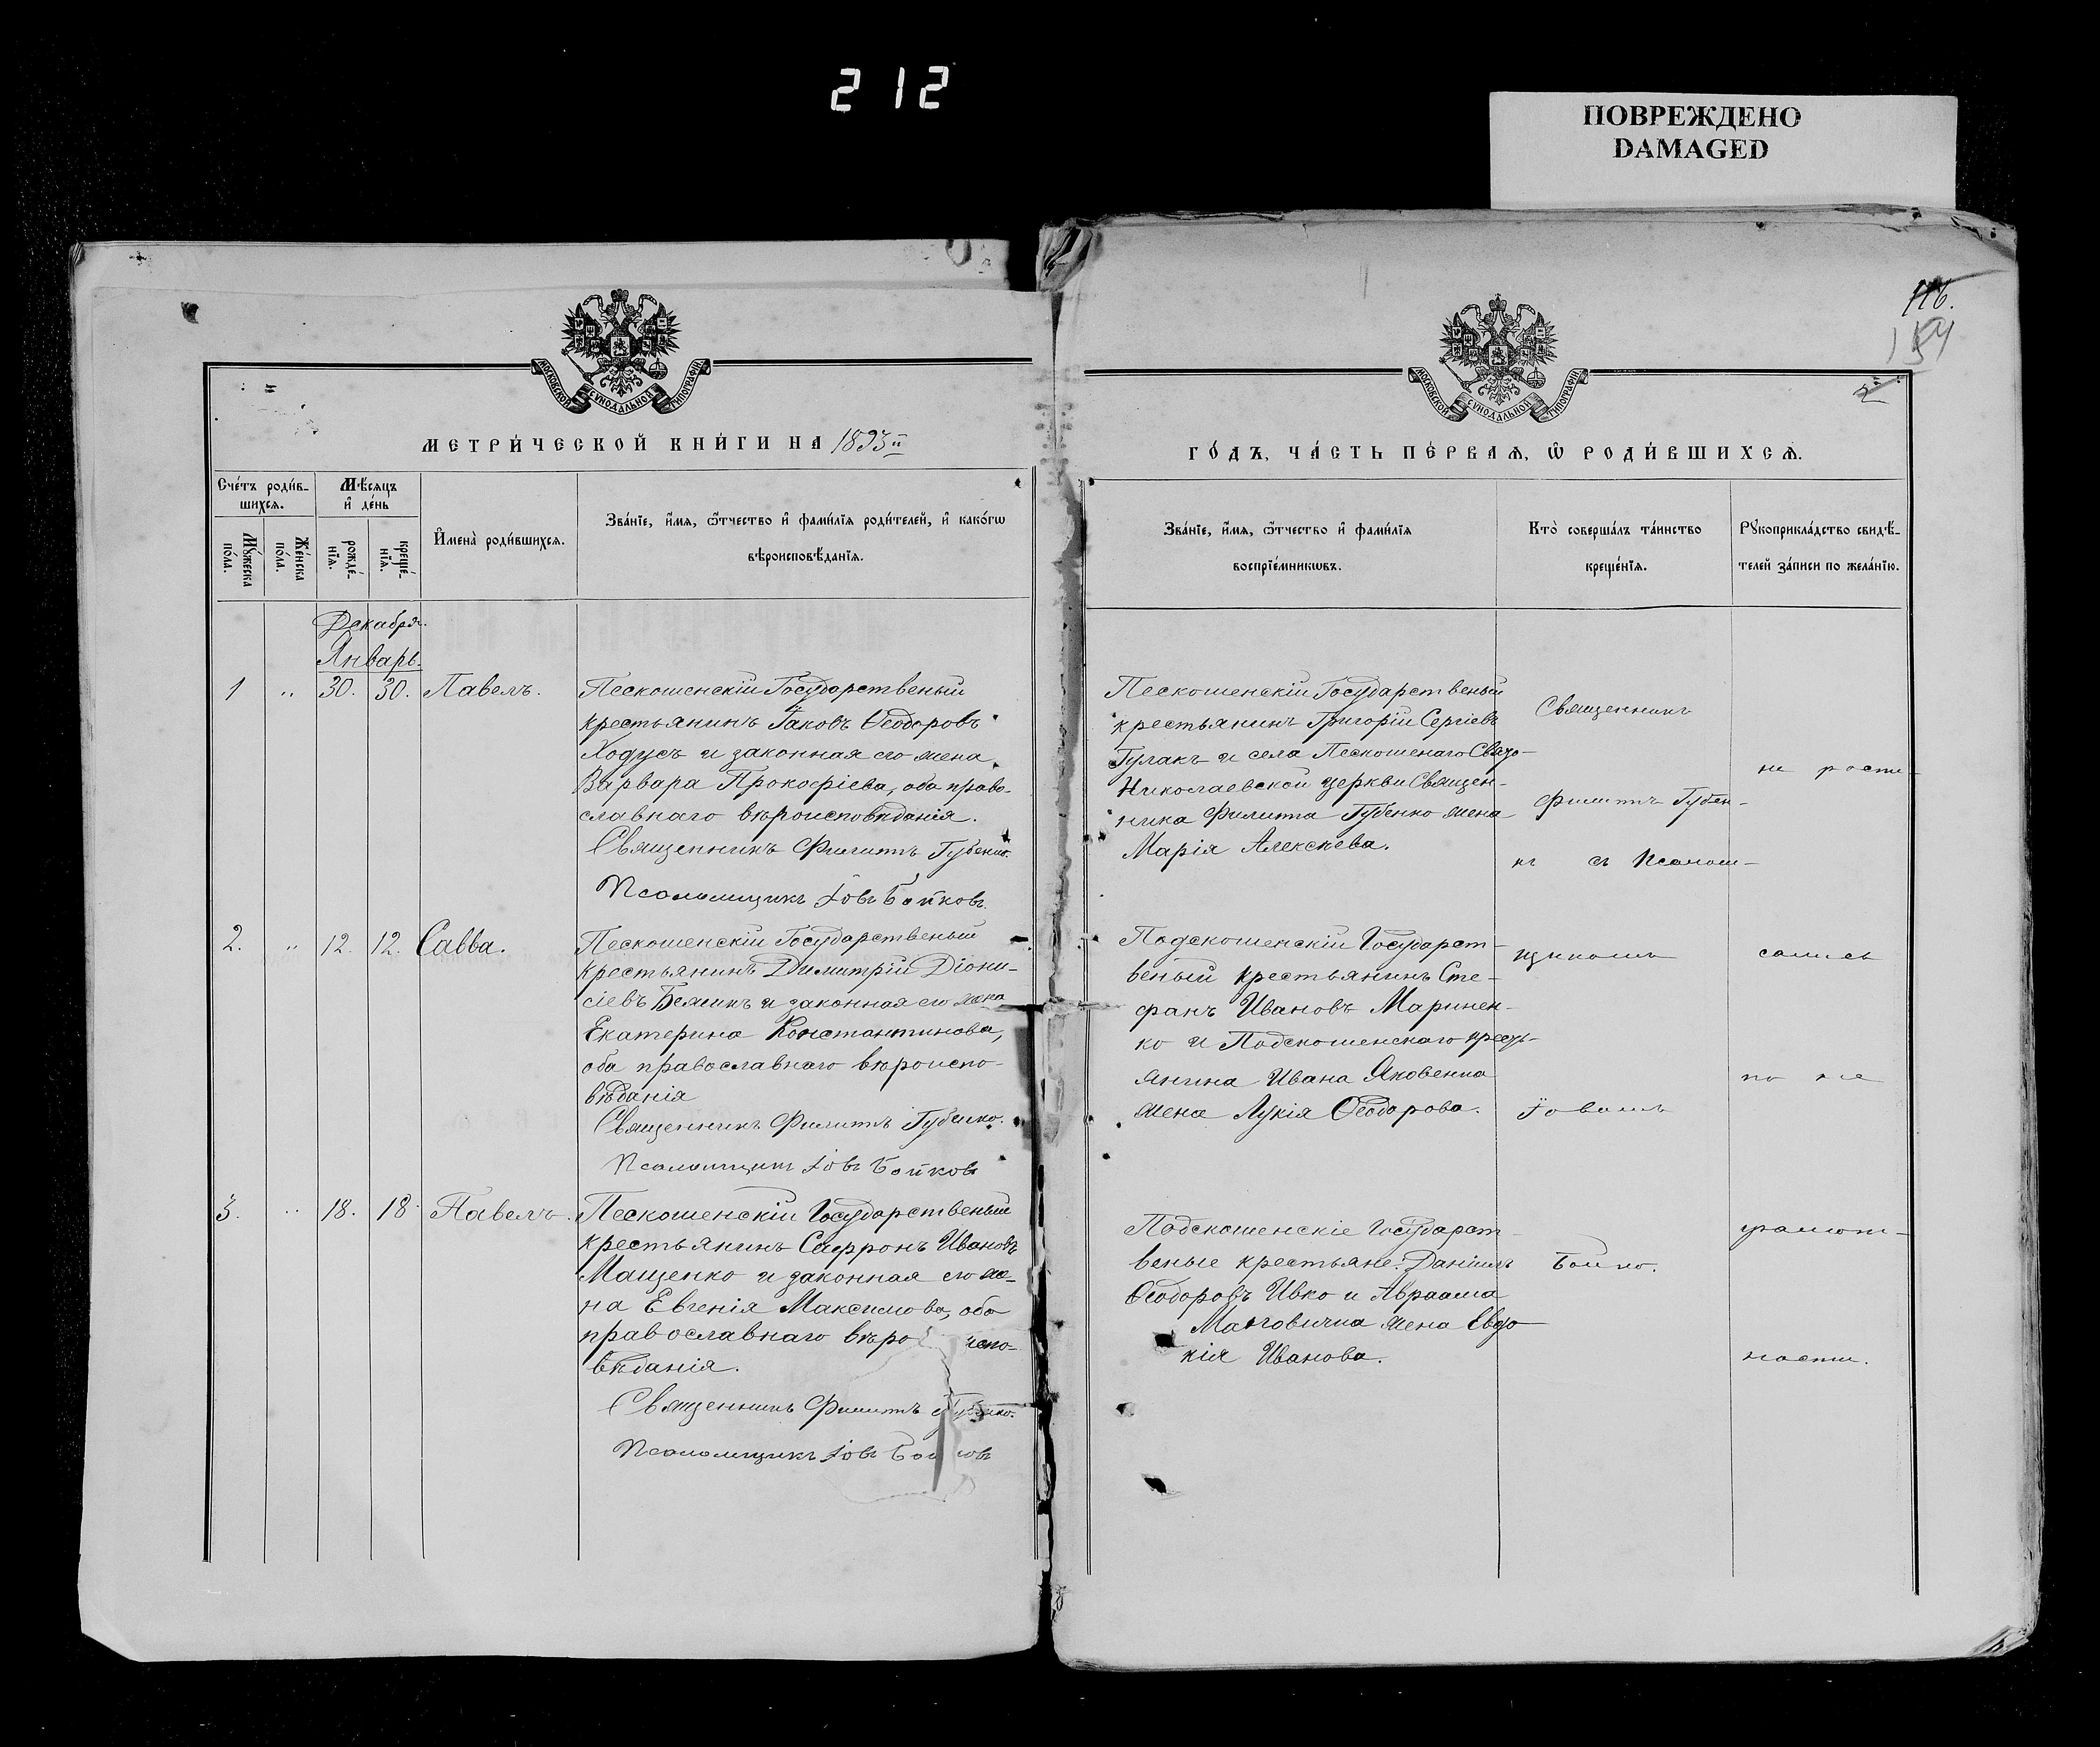 212
ПОВРЕЖДЕНО
DAMAGED
116.
154
МОСКОВСКОЙ СѴНОДАЛЬНОЙ ТИПОГРАФІИ
МЕТРИ́ЧЕСКОЙ КНИ́ГИ НА 1893й
Сче́тъ роди́в-
шихсѧ.
Мꙋ́жеска
по́ла.
Же́нска
по́ла.
Мѣ́сѧцъ
и҆ де́нь
рожде́-
нїѧ.
креще́-
нїѧ.
И҆мена̀ роди́вшихсѧ.
Зва́нїе, и҆́мѧ, ѻ҆́тчество и҆ фами́лїѧ роди́телей, и҆ како́гѡ
вѣроисповѣ́данїѧ.
Декабря.
Январь.
1 " 30. 30. Павелъ.
Пескошенскій Государственый
крестьянинъ Іаковъ Ѳеодоровъ
Ходусъ и законная его жена
Варвара Прокофіева, оба право-
славнаго вѣроисповѣданія.
Священникъ Филиппъ Губенко.
Псаломщикъ Іовъ Бойковъ.
2. " 12. 12. Савва.
Пескошенскій Государственый
крестьянинъ Димитрій Діони-
сіевъ и законная его жена
Екатерина Константинова,
оба православнаго вѣроиспо-
вѣданія
Священникъ Филиппъ Губенко.
Псаломщикъ Іовъ Бойковъ
3. " 18. 18. Павелъ.
Пескошенскій Государственый
крестьянинъ Сафронъ Ивановъ
Мащенко и законная его же-
на Евгенія Максимова, оба
православнаго вѣроиспо-
вѣданія.
Священникъ Филиппъ Губенко.
Псаломщикъ Іовъ Бойковъ
МОСКОВСКОЙ СѴНОДАЛЬНОЙ ТИПОГРАФІИ
ГО́ДЪ, ЧА́СТЬ ПЕ́РВАѦ, Ѡ҆ РОДИ́ВШИХСѦ.
Зва́нїе, и҆́мѧ, ѻ҆́тчество и҆ фами́лїѧ
воспрїе́мникѡвъ.
Кто̀ соверша́лъ та́инство
креще́нїѧ.
Рꙋкоприкла́дство свидѣ́-
телей за́писи по жела́нїю.
Пескошенскій Государственый
крестьянинъ Григорій Сергіевъ
Гулакъ и села Пескошенаго Свято-
Николаевской церкви Священ-
ника Филиппа Губенко жена
Марія Алексѣева.
Подскошенскій Государст-
веный крестьянинъ Сте-
фанъ Ивановъ Маринен-
ко и Подскошенскаго кресть-
янина Ивана Яковенка
жена Лукія Ѳеодорова.
Подскошенскіе Государст-
веные крестьяне: Даніилъ
Ѳеодоровъ Ивко и Авраама
жена Евдо-
кія Иванова.
Священникъ
Филиппъ Губен-
ко съ Псалом-
щикомъ
Іовомъ
Бойко.
не
по не
грамот-
ности.